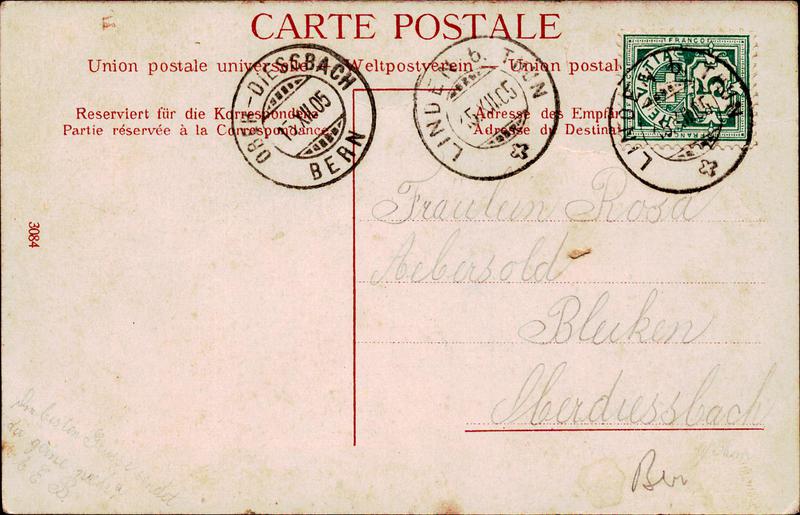 CARTE POSTALE
Union postale universelle — Weltpostverein — Union postale
Reserviert für die Korrespondenz
Partie réservée à la Correspondance
Adresse des Empfän
Adresse du Destinat
OBER-DIESSBACH
XII.05
BERN
LINDEN b. THUN
15.XII.05
FRANCO
HELVETIA
5
LINDEN b. THUN
3084
Fräulein Rosa
Aebersold
Bleiken
Oberdiessbach
Bern
Die besten Grüsse sendet
E B